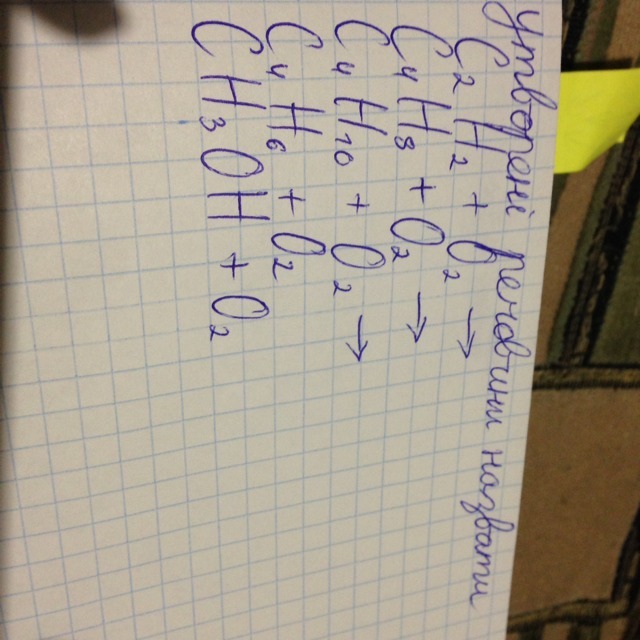 Утворені речовини назвати
C2H2 + O2 →
C4H8 + O2 →
C4H10 + O2 →
C4H6 + O2
CH3OH + O2